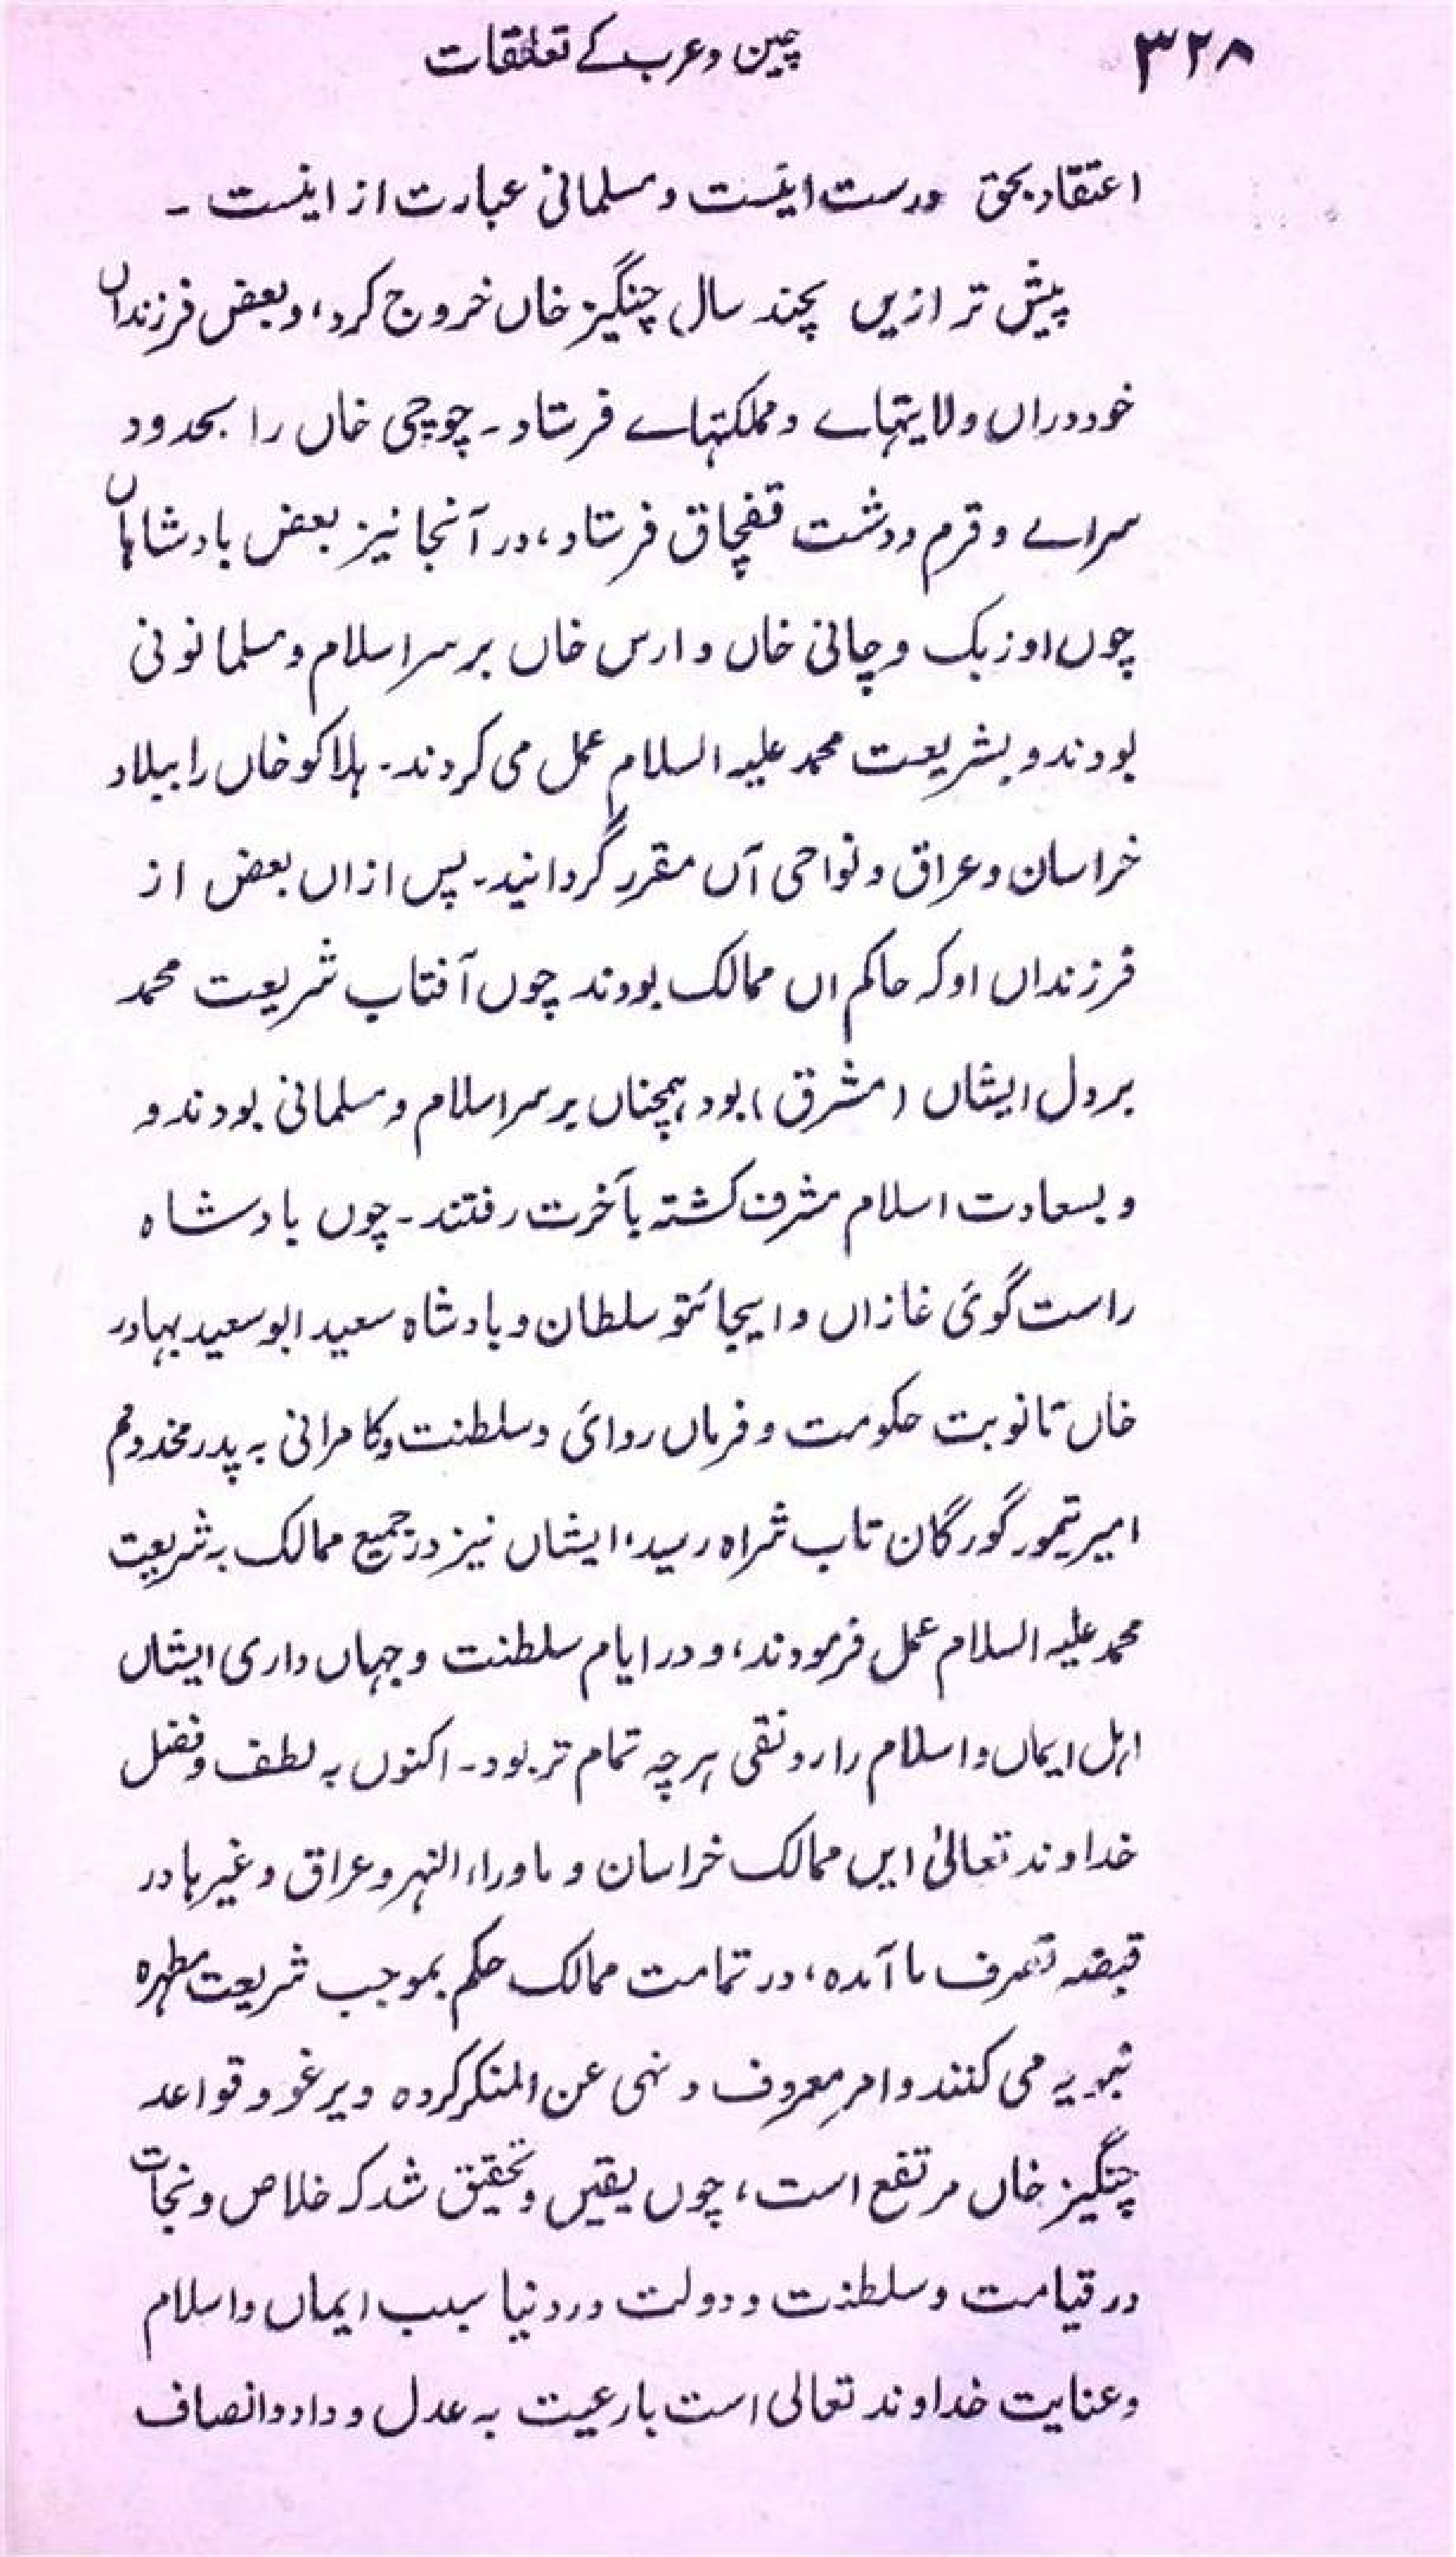 ۳۲۸ چین و عرب کے تعلقات
اعتقاد بحق درست اینست و مسلمانی عبارت از اینست ۔
پیش تر ازیں بچند سال چنگیز خاں خروج کرد، و بعض فرزنداں
خود دراں ولایتہاے و مملکتہاے فرستاد ۔ چوچی خاں را بحدود
سراے و قرم و دشت قفچاق فرستاد، در آنجا نیز بعض بادشاہاں
چوں اوزبک و چانی خاں و ارس خاں بر سر اسلام و مسلمانونی
بودند و بشریعت محمد علیہ السلام عمل می کردند ۔ ہلاکو خاں را ببلاد
خراسان و عراق و نواحی آں مقرر گردانید ۔ پس ازاں بعض از
فرزنداں او کہ حاکم اں ممالک بودند چوں آفتاب شریعت محمد
بر دل ایشاں (مشرق) بود ہمچناں بر سر اسلام و مسلمانی بودند و
و بسعادت اسلام مشرف کشتہ بآخرت رفتند ۔ چوں بادشاہ
راست گوئ غازاں و ایجائتو سلطان و بادشاہ سعید ابو سعید بہادر
خاں تا نوبت حکومت و فرماں روائ و سلطنت و کامرانی بہ پدر مخدوم
امیر تیمور گورگان تاب ثراہ رسید، ایشاں نیز در جمیع ممالک بہ شریعت
محمد علیہ السلام عمل فرمودند، و در ایام سلطنت و جہاں داری ایشاں
اہل ایماں و اسلام را رونقی ہرچہ تمام تر بود ۔ اکنوں بہ لطف و فضل
خداوند تعالیٰ ایں ممالک خراسان و ماوراء النہر و عراق و غیرہا در
قبضہ تصرف ما آمدہ، در تمامت ممالک حکم بموجب شریعت مطہرہ
نبویہ می کنند و امر معروف و نہی عن المنکر کردہ و یرغو و قواعد
چنگیز خاں مرتفع است، چوں یقیں و تحقیق شد کہ خلاص و نجات
در قیامت و سلطنت و دولت در دنیا سبب ایماں و اسلام
و عنایت خداوند تعالی است با رعیت بہ عدل و داد و انصاف